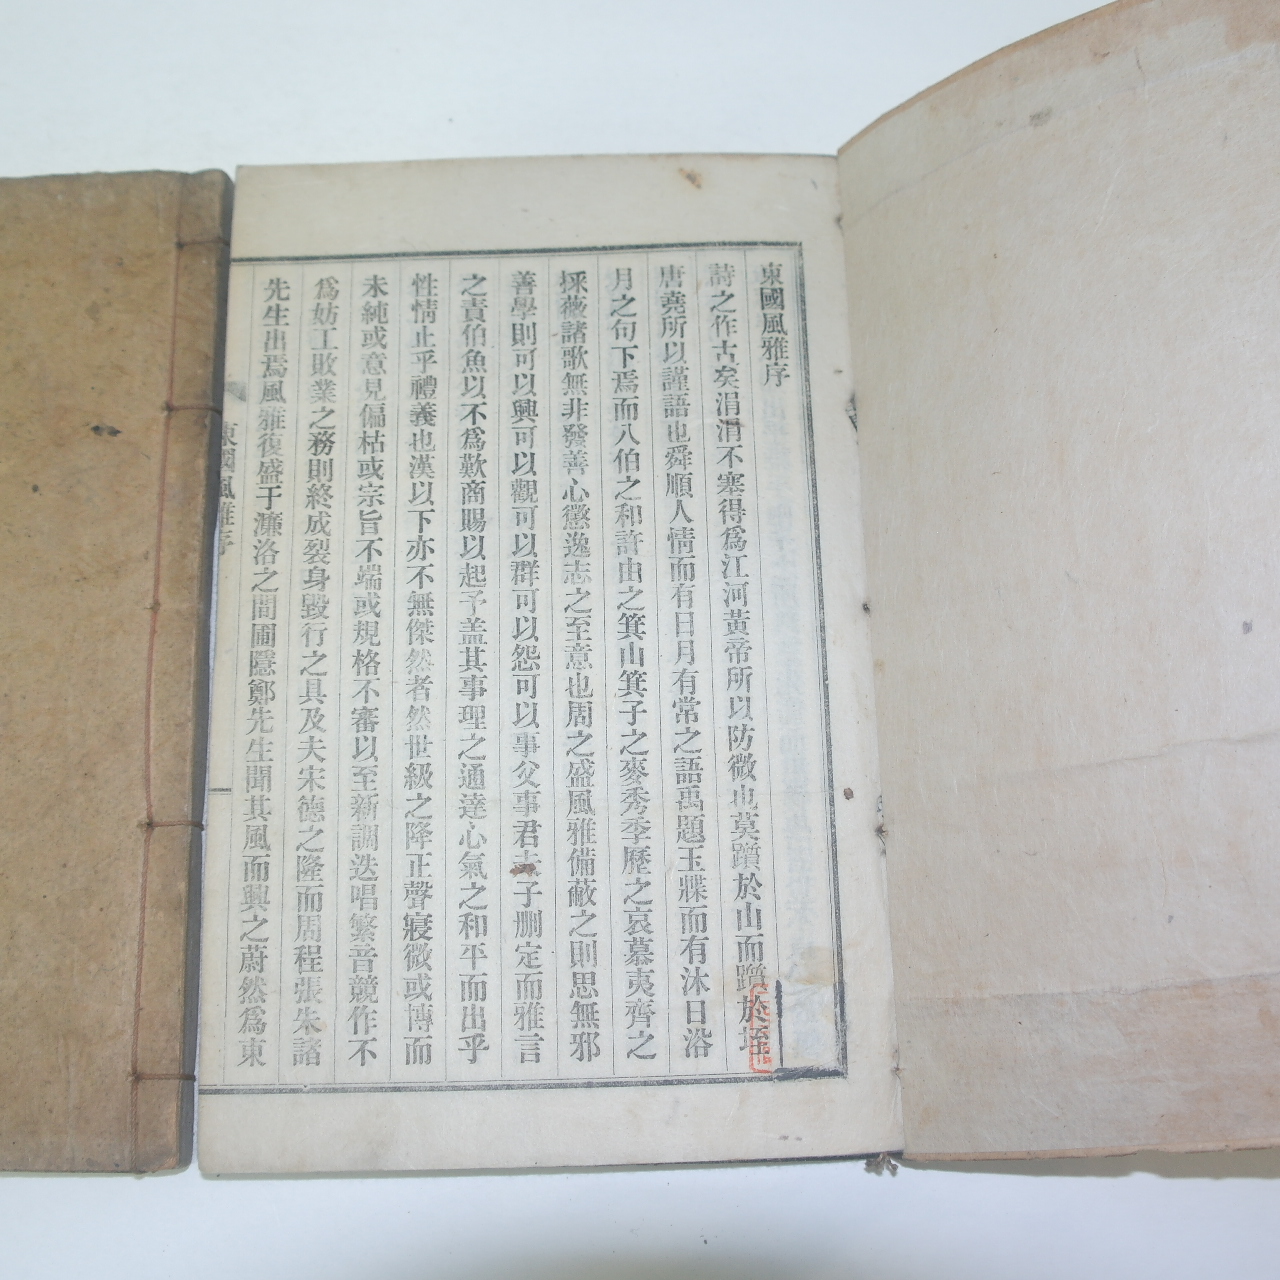 東國風雅序
詩之作古矣涓涓不塞得爲江河黃帝所以防微也莫躓於山而躓於垤
唐堯所以謹語也舜順人情而有日月有常之語禹題玉牒而有沐日浴
月之句下焉而八伯之和許由之箕山箕子之麥秀季歷之哀慕夷齊之
採薇諸歌無非發善心懲逸志之至意也周之盛風雅備蔽之則思無邪
善學則可以興可以觀可以群可以怨可以事父事君夫子删定而雅言
之責伯魚以不爲歎商賜以起予盖其事理之通達心氣之和平而出乎
性情止乎禮義也漢以下亦不無傑然者然世級之降正聲寢微或博而
未純或意見偏枯或宗旨不端或規格不審以至新調迭唱繁音競作不
爲妨工敗業之務則終成裂身毀行之具及夫宋德之隆而周程張朱諸
先生出焉風雅復盛于濂洛之間圃隱鄭先生聞其風而興之蔚然爲東
東國風雅序